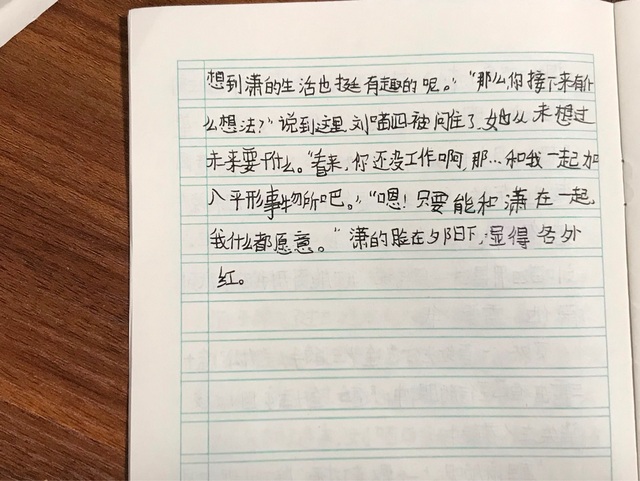 想到潇的生活也挺有趣的呢。”“那么,你接下来有什
么想法?”说到这里,刘喵四被问住了,她从未想过
未来要干什么。“看来,你还没工作啊,那…和我一起加
入平形事物所吧。”“嗯!只要能和潇在一起,
我什么都愿意。”潇的脸在夕阳下,显得各外
红。